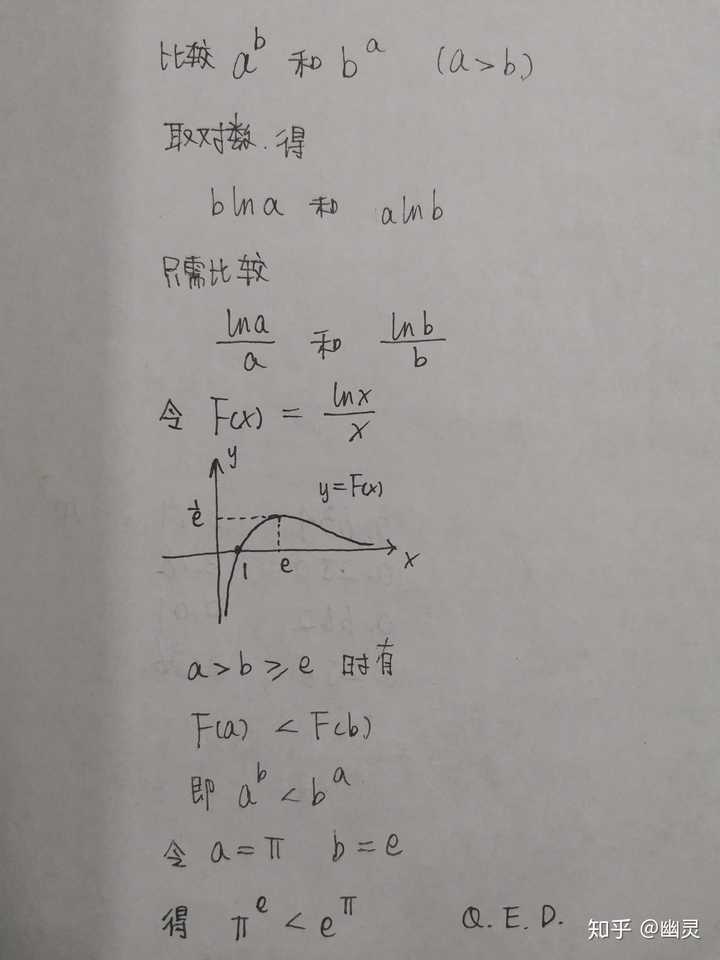 比较 a^b 和 b^a (a>b)
取对数.得
b ln a 和 a ln b
只需比较
ln a / a 和 ln b / b
令 F(x) = ln x / x
y
y=F(x)
1/e
1 e x
a>b⩾e 时有
F(a) < F(b)
即 a^b < b^a
令 a=π b=e
得 π^e < e^π Q.E.D.
知乎 @幽灵